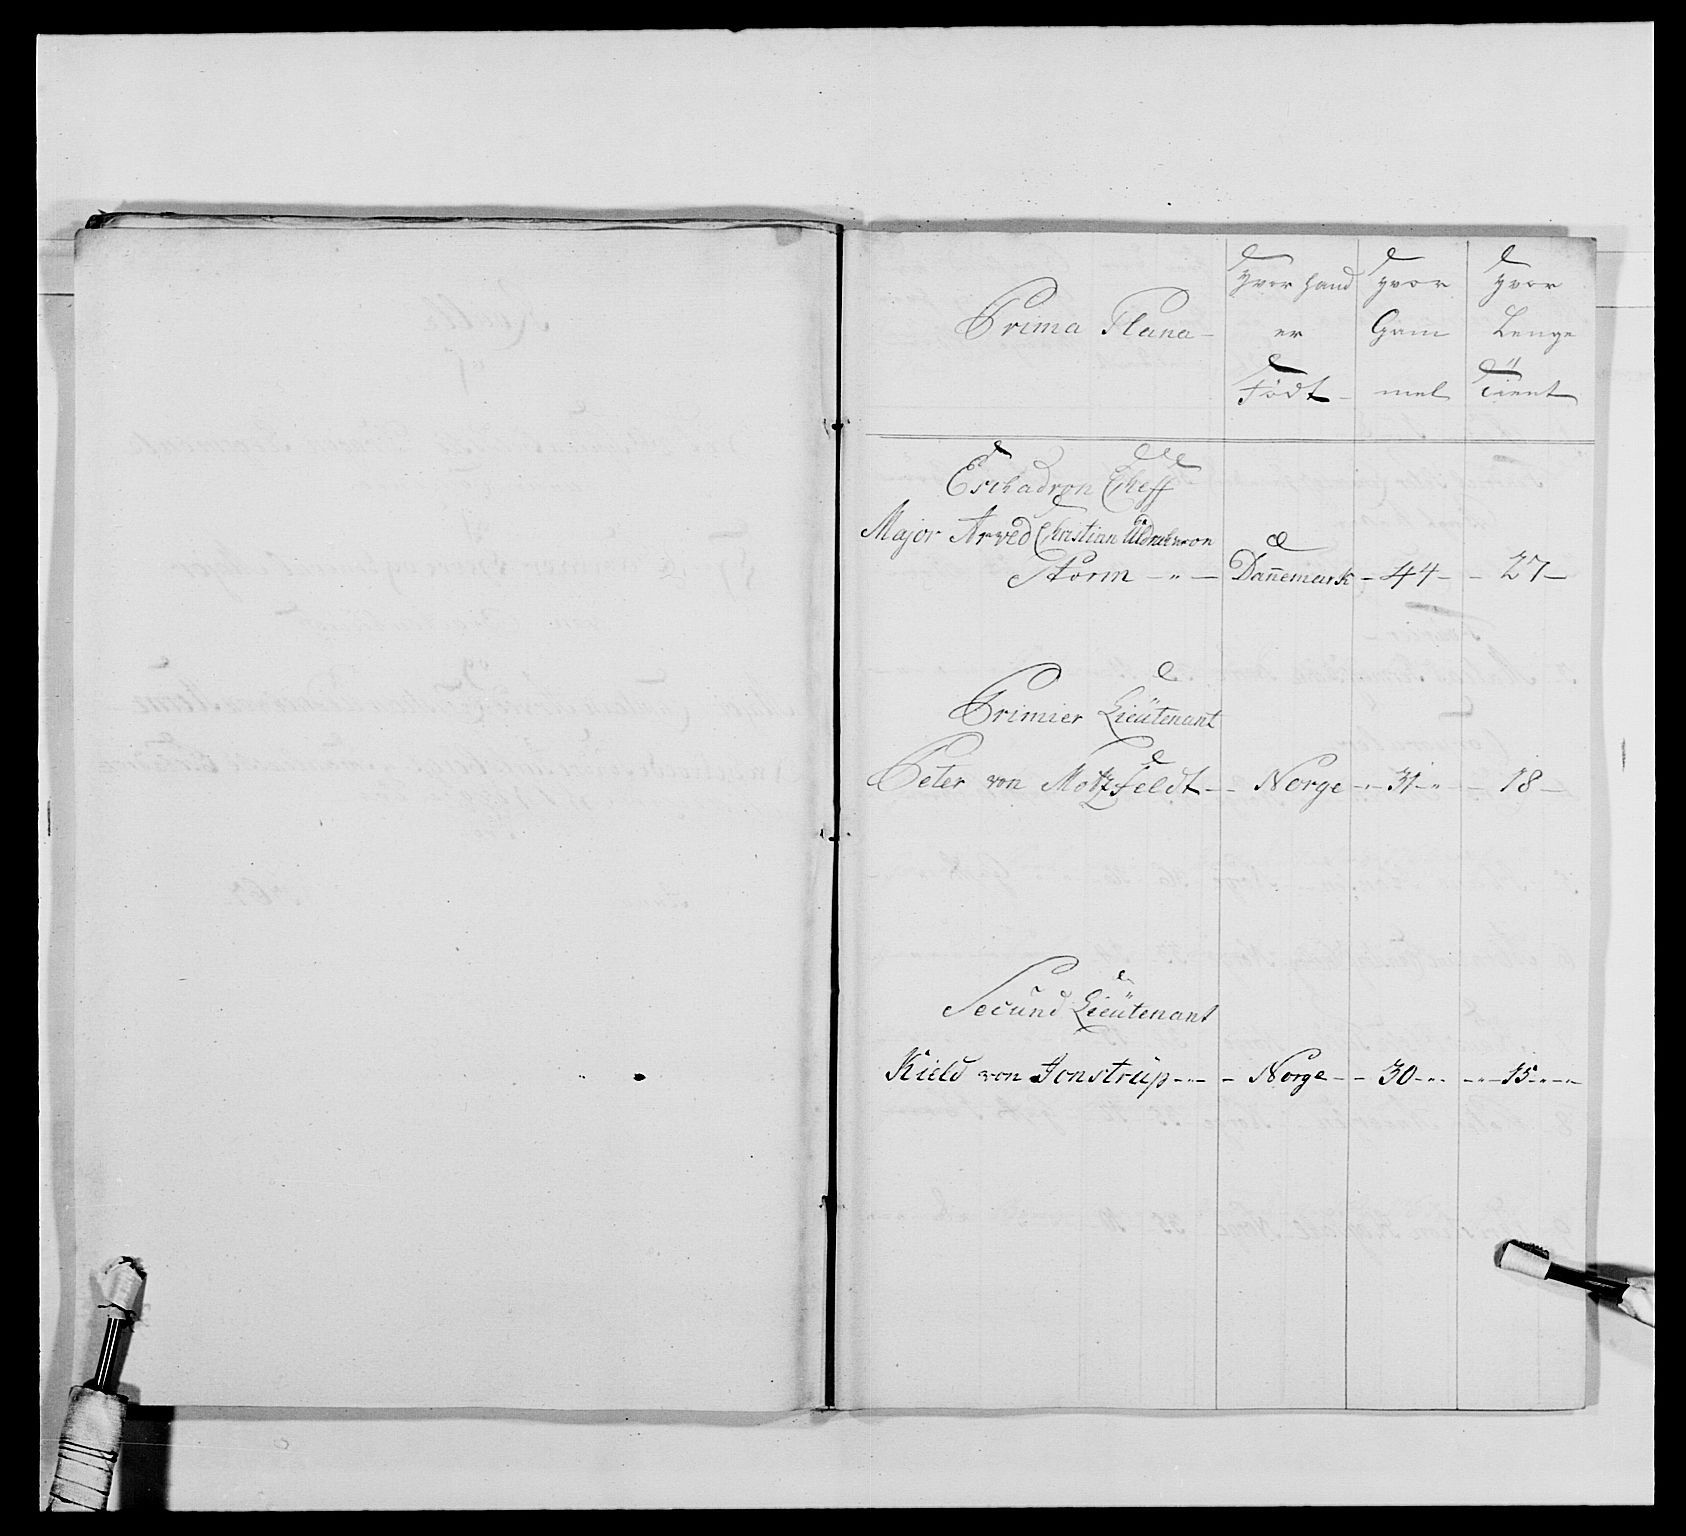 Prima Plana -
Hvor hand
er
Född -
Hvor
Gam
mel
Hvor
Lenge
Tient
Eschadron Cheff
Major Arved Christian von
Storm - " - Dannemark - 44 - - 27 -
Primier Lieütenant
Peter von Motzfeldt - - Norge - " - 31 - " - - 18 -
Secund Lieütenant
Kield von Jonstrüp - " - - Norge - - 30 - " - " - 15 - " -